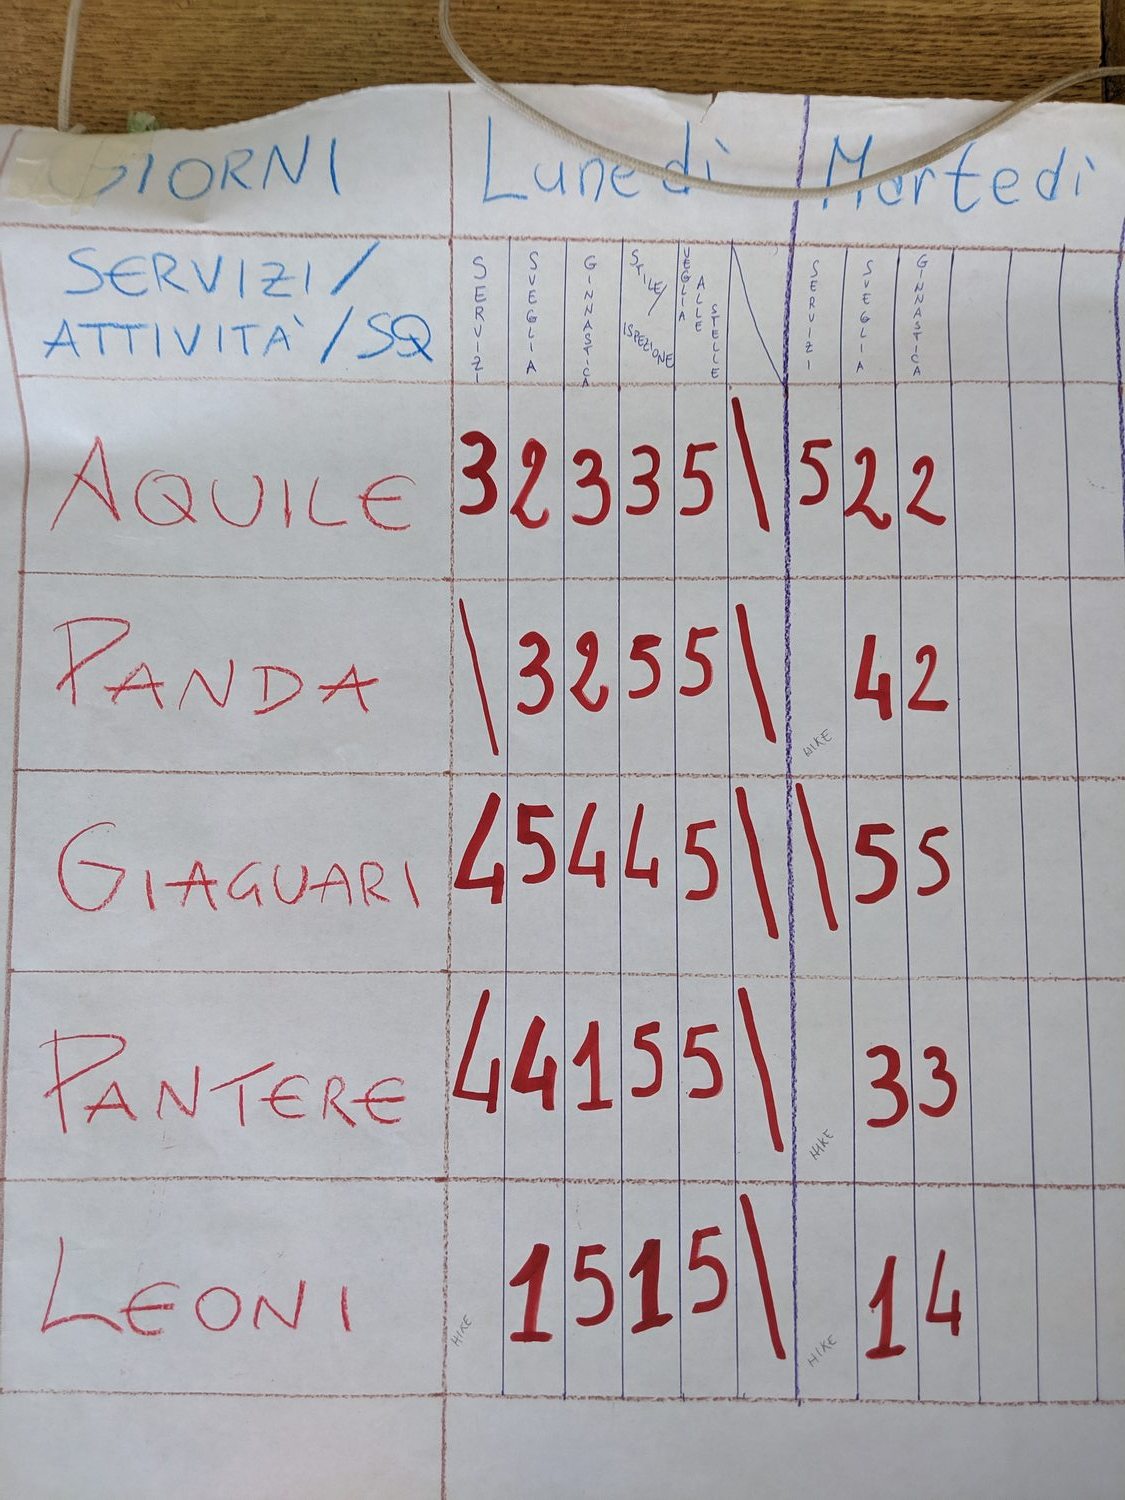 GIORNI Lunedì Martedì
SERVIZI/
ATTIVITÀ/SQ
SERVIZI SVEGLIA GINNASTICA STILE/ISPEZIONE VEGLIA ALLE STELLE SERVIZI SVEGLIA GINNASTICA
AQUILE 3 2 3 3 5 \ 5 2 2
PANDA \ 3 2 5 5 \ HIKE 4 2
GIAGUARI 4 5 4 4 5 \ \ 5 5
PANTERE 4 4 1 5 5 \ HIKE 3 3
LEONI HIKE 1 5 1 5 \ HIKE 1 4